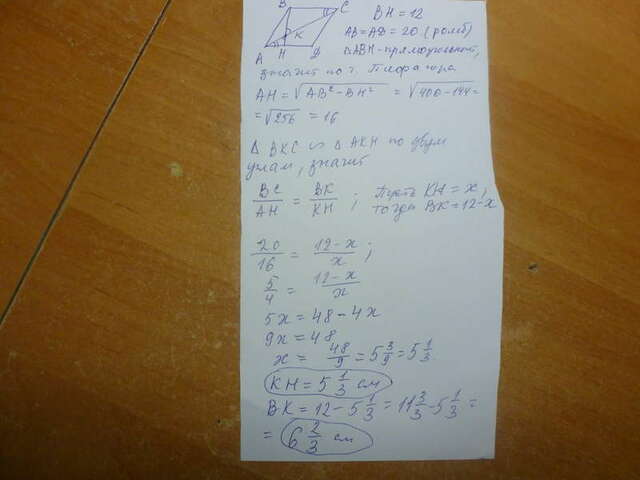 B C
K
A H D
BH = 12
AB = AD = 20 (ромб)
△ABH - прямоугольный,
значит по т. Пифагора
AH = √AB² - BH² = √400 - 144 =
= √256 = 16
△ BKC ∾ △ AKH по двум
углам, значит
BC/AH = BK/KH ; Пусть KH = x,
тогда BK = 12 - x
20/16 = 12 - x/x ;
5/4 = 12 - x/x
5x = 48 - 4x
9x = 48
x = 48/9 = 5 3/9 = 5 1/3
KH = 5 1/3 см
BK = 12 - 5 1/3 = 11 3/3 - 5 1/3 =
= 6 2/3 см